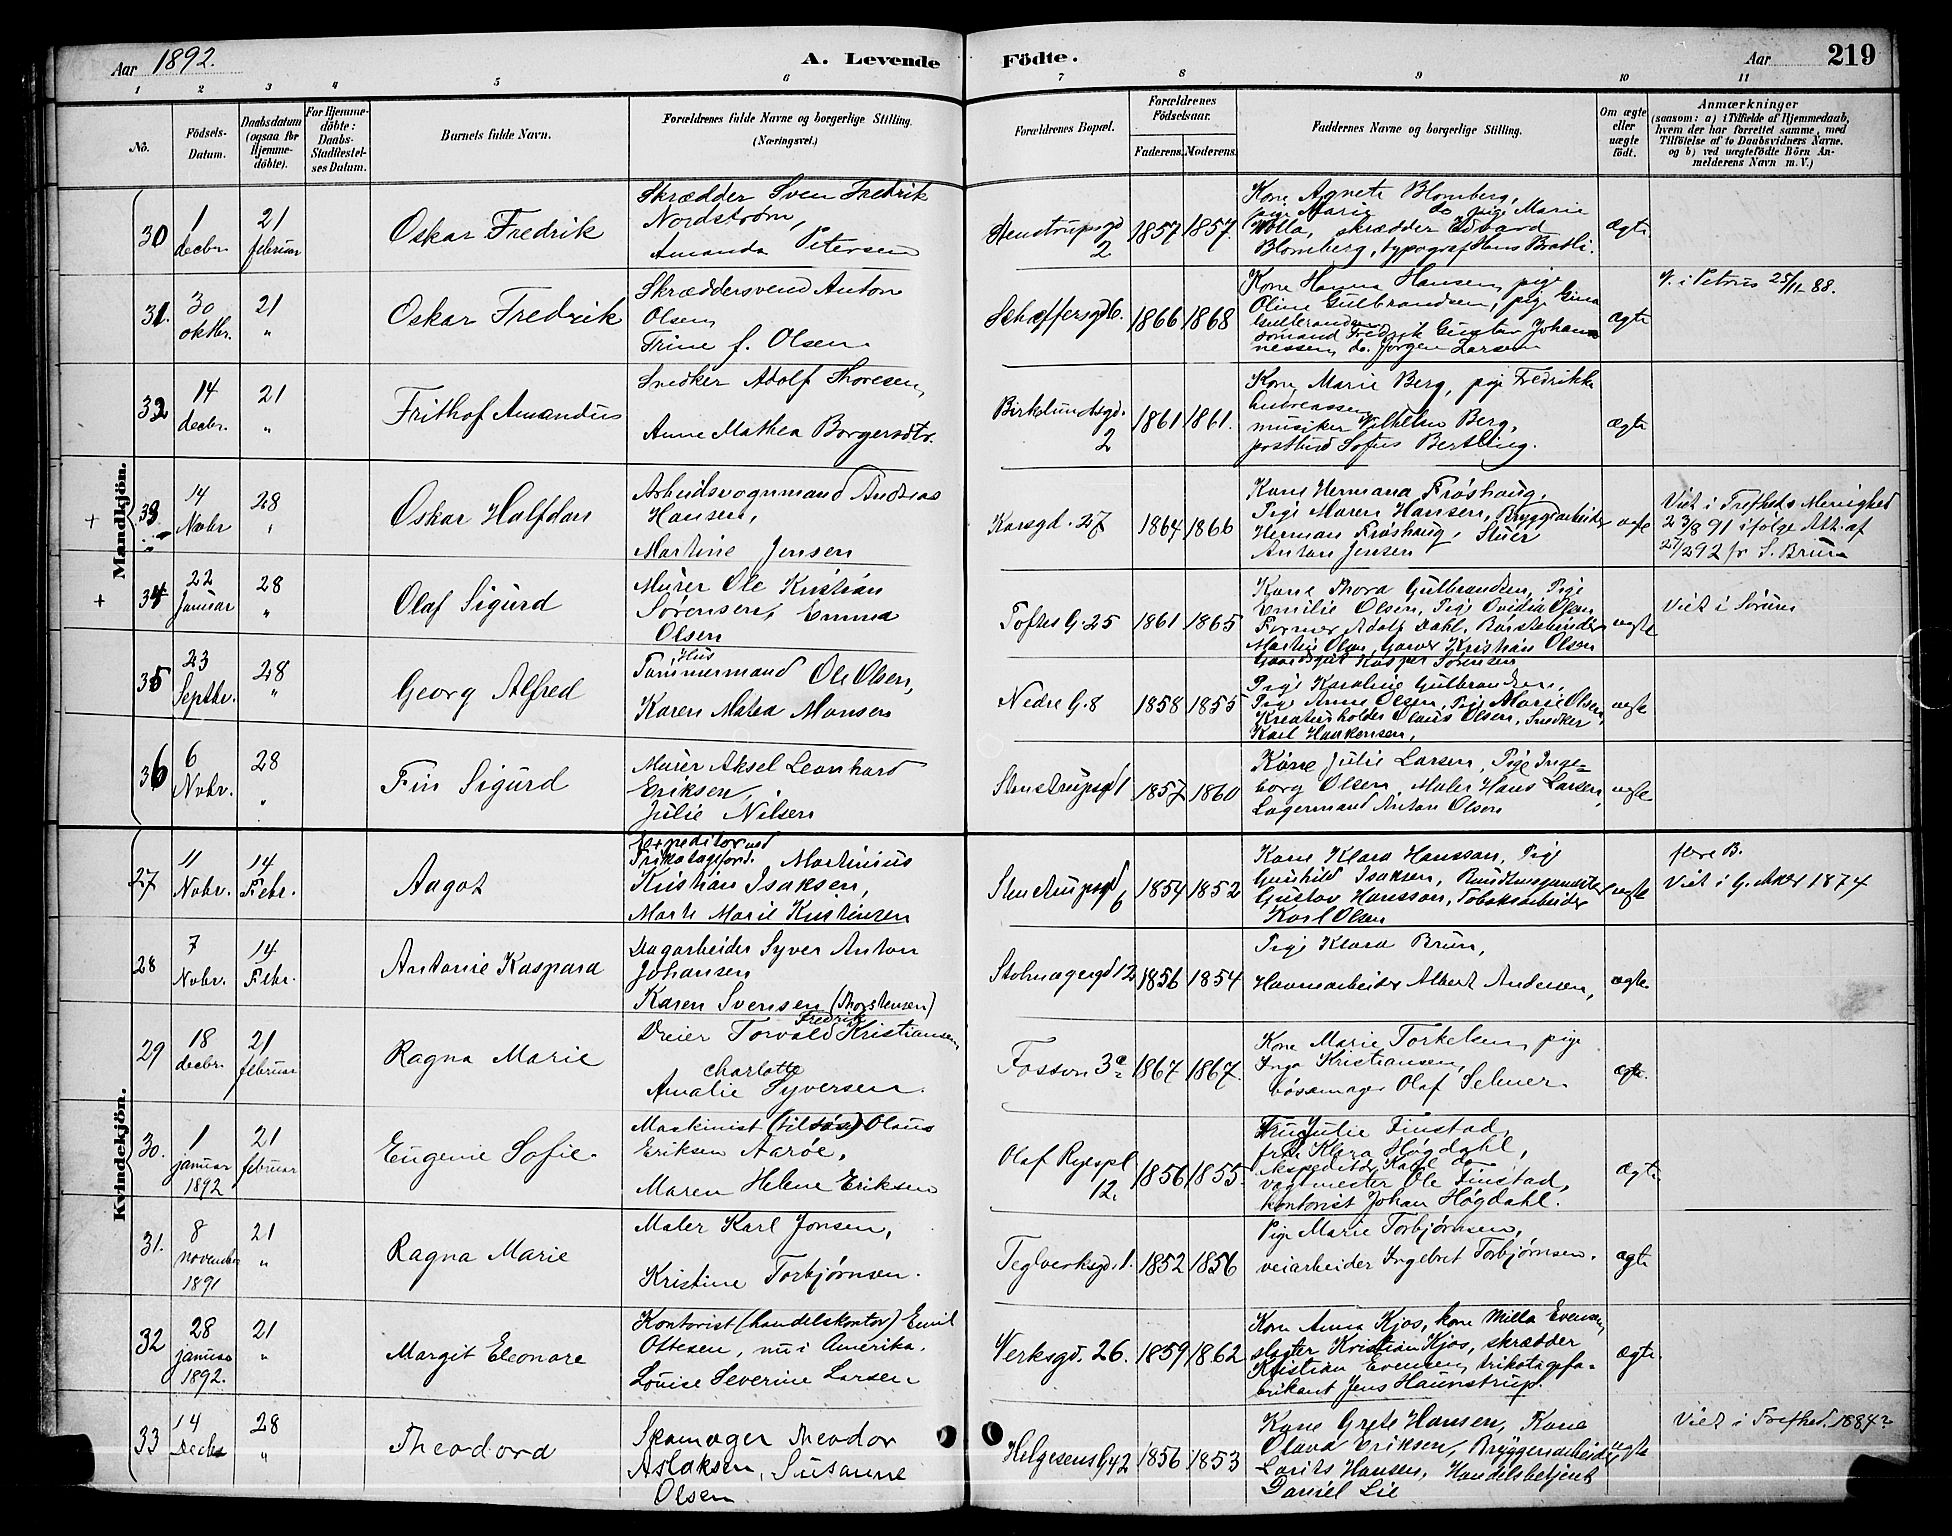 Aar 1892.
A. Levende Födte.
Aar 219
1 2 3 4 5 6 7 8 9 10 11
No.
Födsels-Datum.
Daabsdatum (ogsaa for Hjemmedöbte).
For Hjemmedöbte: Daabs-Stadfæstelses Datum.
Barnets fulde Navn.
Forældrenes fulde Navne og borgerlige Stilling. (Næringsvei.)
Forældrenes Bopæl.
Forældrenes Födselsaar.
Faderens. Moderens.
Faddernes Navne og borgerlige Stilling.
Om ægte eller uægte födt.
Anmærkninger
(saasom: a) i Tilfælde af Hjemmedaab, hvem der har forrettet samme, med Tilföielse af to Daabsvidners Navne. og b) ved uægtefödte Börn Anmelderens Navn m. V.)
Mandkjön.
30 1 decbr. 21 februar Oskar Fredrik
Skrædder Sven Fredrik
Nordstrøm,
Amanda Petersen
Stenstrupsgd 2 1857 1857.
Kone Agnete Blomberg,
pige Marie do, pige Marie
Wolla, skrædder Edvard
Blomberg, typograf Hans Bratli.
ægte
31. 30 oktbr. 21 " Oskar Fredrik
Skræddersvend Anton
Olsen
Trine f. Olsen.
Schæffersgd 6. 1866 1868
Kone Hanna Hansen, pige
Oline Gulbrandsen, pige Gina
Gulbrandsen
sømand Fredrik Gustav Johan-
nessen, do. Jørgen Larsen
ægte
V. i Petrus 25/11 88.
32 14 decbr. 21 " Frithof Amandus
Snedker Adolf Thoresen,
Anne Mathea Borgersdtr.
Birkelundsgd. 2 1861 1861.
Kone Marie Berg, pige Fredrikke
Andreassen
musiker Vilhelm Berg,
postbud Sofus Bertling.
ægte
+ 33 14 Novbr 28 " Oskar Halfdan
Arbeidsvognmand Andreas
Hansen,
Martine Jensen
Korsgd. 27 1864 1866
Kone Hermana Frøshaug,
Pige Maren Hansen, Bryggearbeider
Herman Frøshaug, Stuer
Anton Jensen
ægte
Viet i Trefheds Menighed
23/8 91 ifølge Att. af
27/2 92 fr S. Bruun
+ 34 22 Januar 28 " Olaf Sigurd
Murer Ole Kristian
Sørensen, Emma
Olsen
Toftes G. 25 1861 1865
Kone Thora Gulbrandsen, Pige
Emilie Olsen, Pige Ovidia Olsen
Former Adolf Dahl, Børstebinder
Martin Olsen, Garver Kristian Olsen
Gaardsgut Kasper Sørensen
ægte
Viet i Sørum
35 23 Septbr. 28 " Georg Alfred
Hus
Tømmermand Ole Olsen,
Karen Matea Monsen
Nedre G. 8 1858 1855
Pige Karoline Gulbrandsen,
Pige Anne Olsen, Pige Marie Olsen,
Kreaturholder Olaus Olsen, Snedker
Karl Haakensen,
ægte
36 6 Novbr. 28 " Fin Sigurd
Murer Aksel Leonhard
Eriksen,
Julie Nilsen
Stenstrupsgd 1 1857 1860
Kone Julie Larsen, Pige Inge-
borg Olsen, Maler Hans Larsen,
Lagermand Anton Olsen
ægte
Kvindekjön.
27 11 Novbr. 14 Febr. Aagot
Expeditor ved
Trikotageforr. Martinius
Kristian Isaksen,
Marte Marie Kristensen
Stenstrupsgd 6 1854 1852
Kone Klara Hansson, Pige
Gunhild Isaksen,
Gustav Hansson, Tobaksarbeider
Karl Olsen
ægte
flere B.
Viet i G. Aker 1874
28 7 Novbr. 14 Febr. Antonie Kaspara
Dagarbeider Syver Anton
Johansen
Karen Svensen (Thorstensen)
Stolmagergd 12 1856 1854
Pige Klara Brun,
Havnearbeider Albert Andersen,
ægte
29 18 decbr. 21 februar Ragna Marie
Fredrik
Dreier Torvald Kristiansen,
Charlotte
Amalie Syversen.
Fossvn 3c 1867 1867.
Kone Marie Torkelsen, pige
Inga Kristiansen,
bøssemager Olaf Selmer.
ægte.
30. 1 januar 1892 21 februar Eugenie Sofie.
Maskinist (tilsøs) Olaus
Eriksen Aarøe,
Maren Helene Eriksen
Olaf Ryespl 12. 1856 1855.
Frue Julie Finstad,
frk. Klara Høgdahl,
ekspeditør Karl do
vagtmester Ole Finstad,
kontorist Johan Høgdahl.
ægte
31. 8 november 1891 21 " Ragna Marie
Maler Karl Jonsen,
Kristine Torbjørnsen.
Teglverksgd. 1. 1852 1856
Pige Marie Torbjørnsen,
veiarbeider Ingebret Torbjørnsen.
ægte
32 28 januar 1892. 21 " Margit Eleonore
Kontorist (handelskontor) Emil
Ottesen, nu i Amerika.
Louise Severine Larsen
Verksgd. 26. 1859 1862
Kone Anna Kjos, kone Milla Evensen,
slagter Kristian Kjos, skrædder
Kristian Evensen, trikotagefa-
brikant Jens Haunstrup.
ægte.
33 14 Decbr 28 " Theodora
Skomager Theodor
Aslaksen, Susanne
Olsen
Helgesens G 42 1856 1853
Kone Grete Hansen, Kone
Olava Eriksen, Bryggeriarbeider
Lauits Hansen, Handelsbetjent
Daniel Lie
ægte
Viet i Trefhed. 1884?